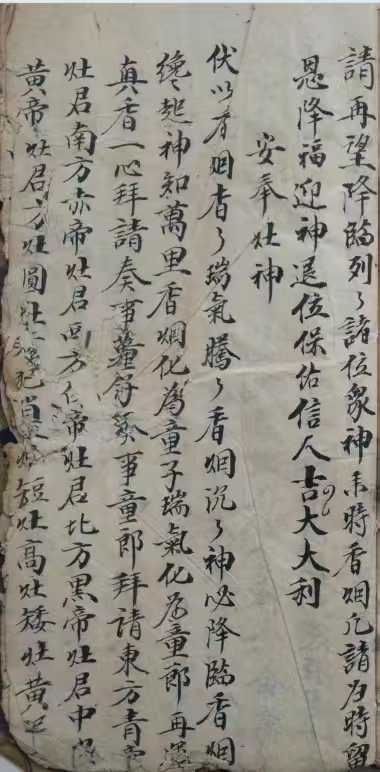 請再望降臨列々諸位衆神来時香烟凡請在時留
恩降福迎神退位保佑信人吉大大利
安奉灶神
伏以香烟杳々瑞氣騰々香烟沉々神必降臨香烟
纔起神知萬里香烟化為童子瑞氣化为童郎再
真香一心拜請奏事董仔奏事童郎拜請東方青帝
灶君南方赤帝灶君西方仁帝灶君北方黑帝灶君中
黄帝灶君方灶圓灶短灶高灶矮灶黄